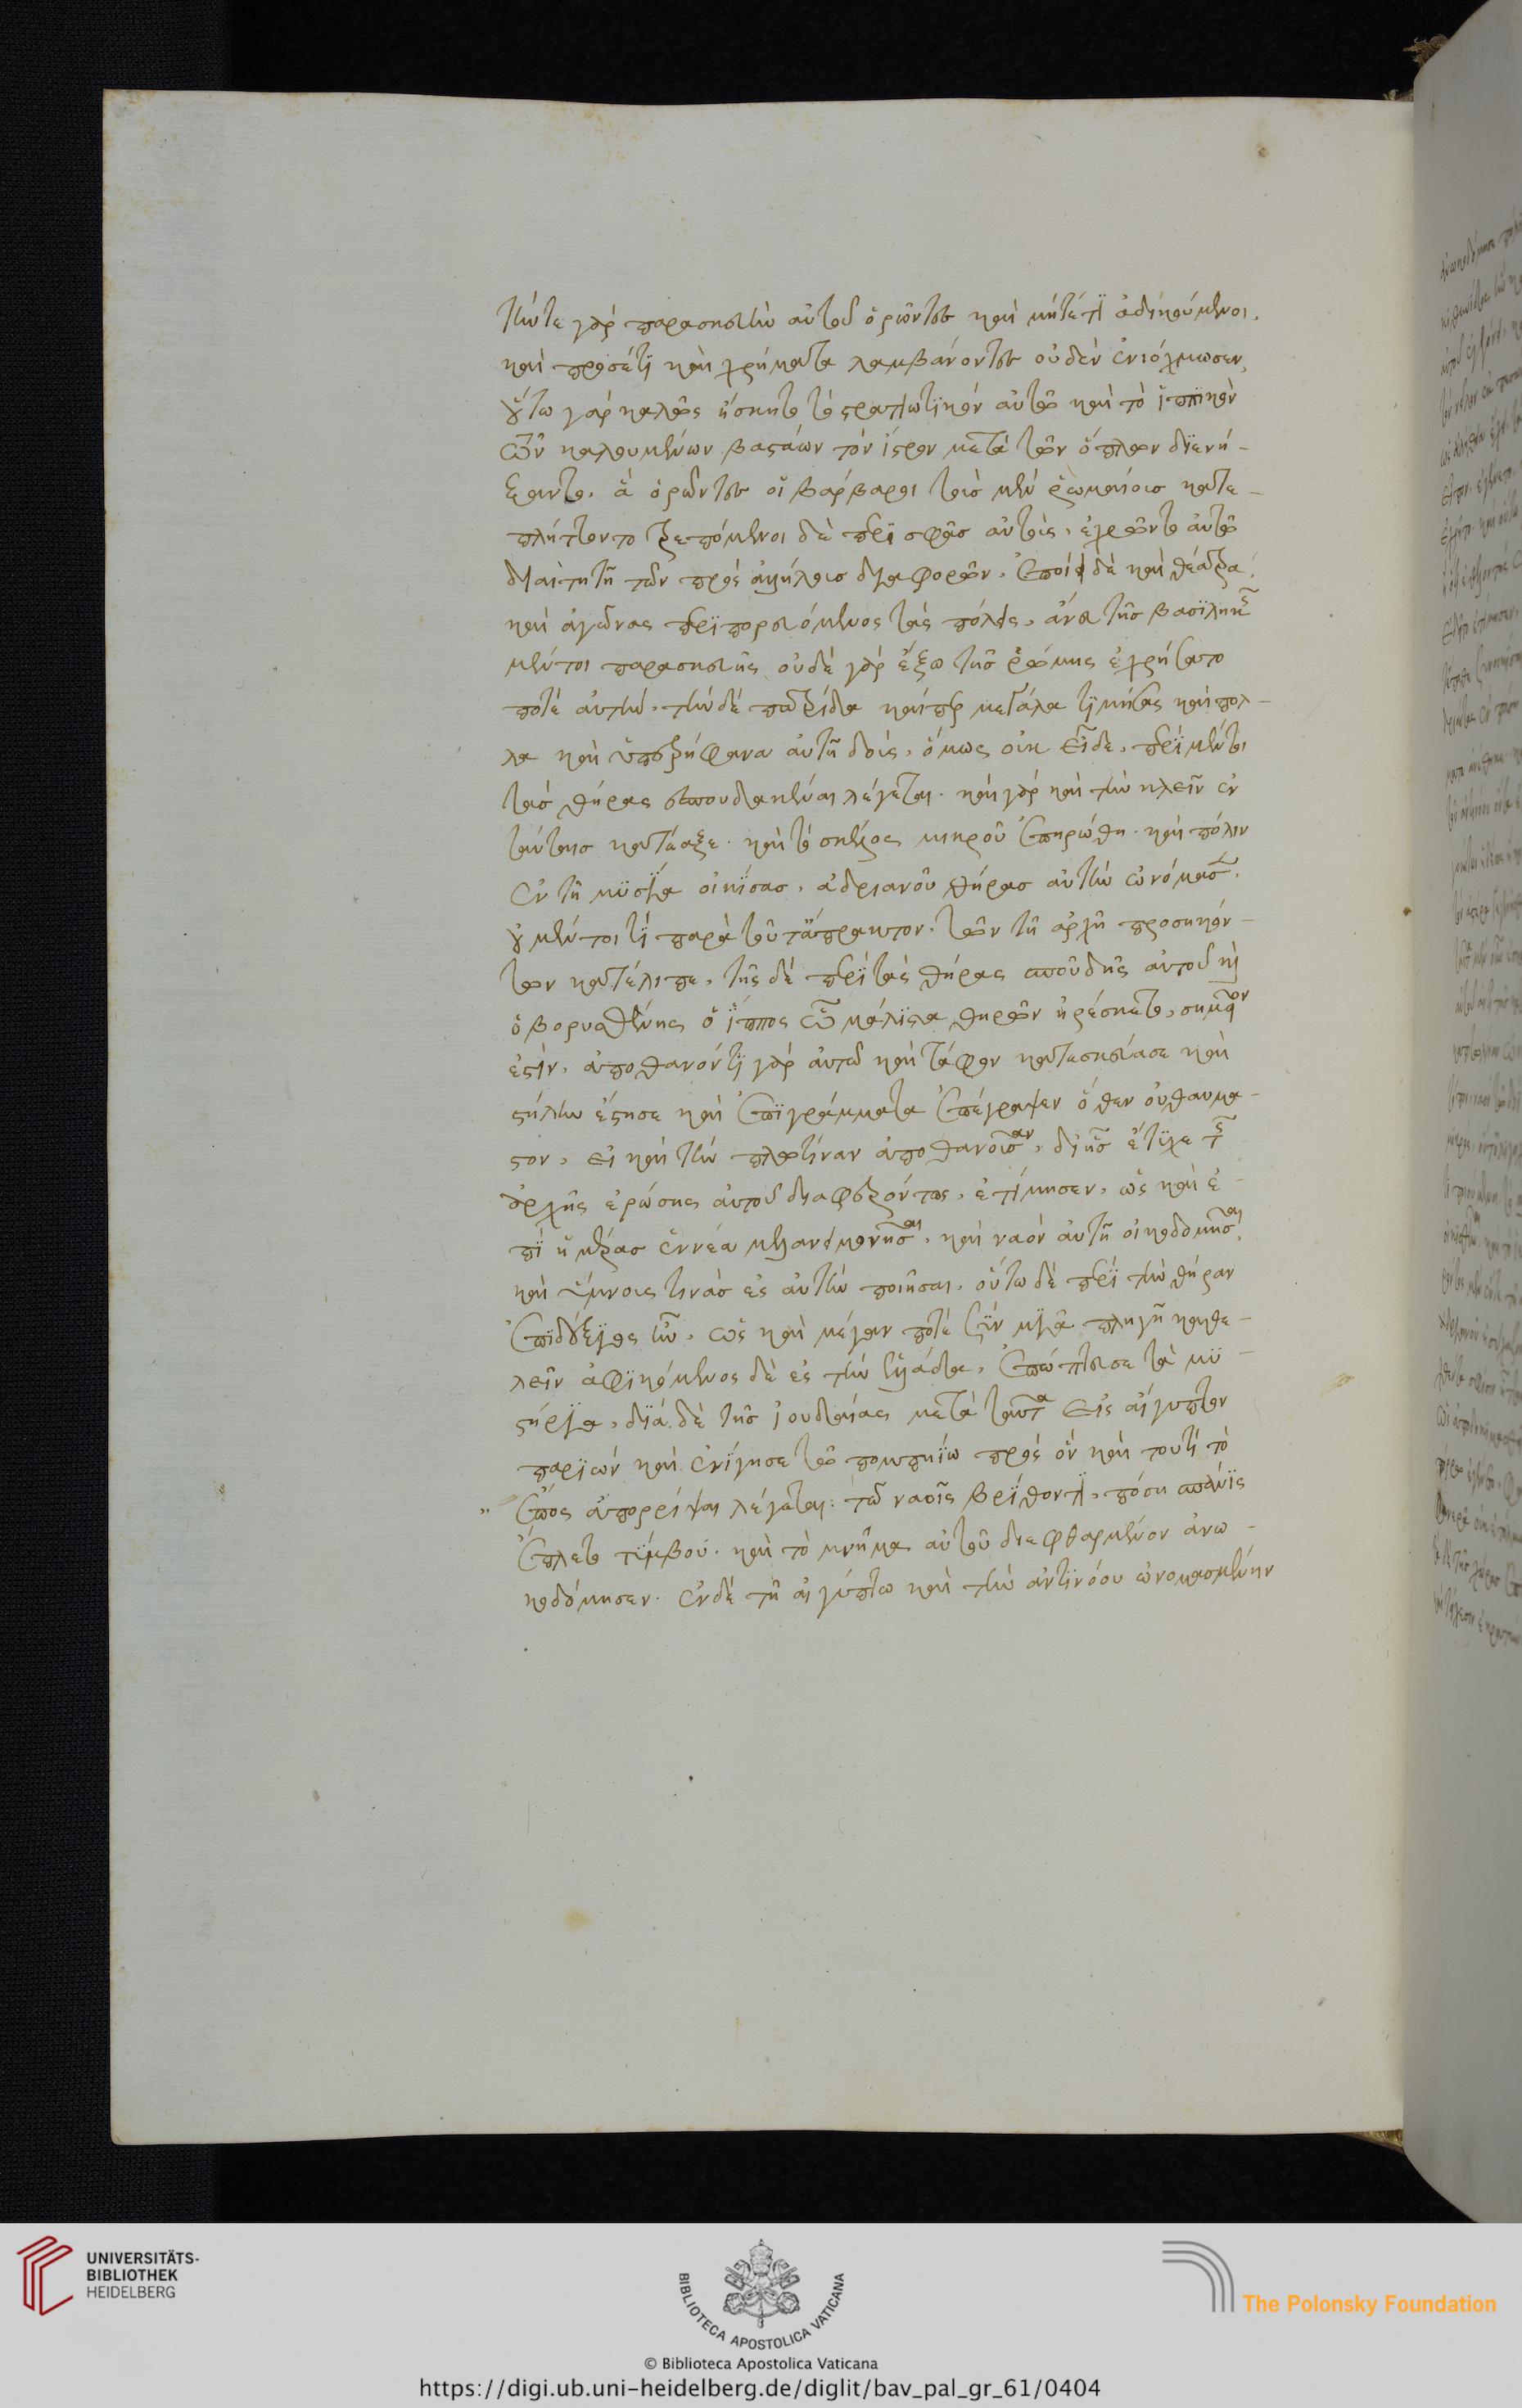 τήντε γὰρ παρασκευὴν αὐτοῦ ὁρῶντες καὶ μήτέ τι ἀδικούμενοι.
καὶ προσέτι καὶ χρήματα λαμβάνοντες οὐδὲν ἐνεόχμωσαν,
οὕτω γὰρ καλῶς ἤσκητο τὸ στρατιωτικὸν αὐτῶ καὶ τὸ ἱππικὸν
τῶν καλουμένων βαστάων τὸν ἴστρον μετὰ τῶν ὅπλων διενή-
ξαντο. ἃ ὁρῶντες οἱ βάρβαροι τοὺσ μὲν ῥωμαίουσ κατε-
πλήττοντο τρεπόμενοι δὲ περὶ σφᾶσ αὐτοὺς, ἐχρῶντο αὐτῶ
διαιτητῇ τῶν πρὸς ἀλλήλουσ διαφορῶν. ἐποίει δὲ καὶ θέατρα
καὶ ἀγῶνας περιπορευόμενος τὰς πόλεις, ἄνευ τῆσ βασιλικῆς
μέντοι παρασκευῆς οὐδὲ γὰρ ἔξω τῆσ ῥώμης ἐχρήσατό
ποτε αὐτῆ. τὴν δὲ πατρίδα καίπερ μεγάλα τιμήσας καὶ πολ-
λὰ καὶ ὑπερήφανα αὐτῇ δοὺς, ὅμως οὐκ εἶδε. περὶ μέντοι
τὰσ θήρας ἐσπουδακέναι λέγεται. καὶ γὰρ καὶ τὴν κλεῖν ἐν
ταύταισ κατέαξε. καὶ τὸ σκέλος μικροῦ ἐπηρώθη. καὶ πόλιν
ἐν τῇ μυσία οἰκίσας, ἀδριανοῦ θήρασ αὐτὴν ὠνόμασεν.
οὐ μέντοί τι παρὰ τοῦτ' ἄπρακτον. τῶν τῇ ἀρχῇ προσηκόν-
των κατέλιπε. τῆς δὲ περὶ τὰς θήρας σπουδῆς αὐτοῦ καὶ
ὁ βορυσθένης ὁ ἵππος ὧ μάλιστα θηρῶν ἠρέσκετο, σημεῖον
ἐστὶν. ἀποθανόντι γὰρ αὐτῶ καὶ τάφον κατεσκεύασε καὶ
στήλην ἔστησε καὶ ἐπιγράμματα ἐπέγραψεν ὅθεν οὐ θαυμα-
στὸν, εἰ καὶ τὴν πλωτίναν ἀποθανοῦσαν, δι' ἧς ἔτυχε τῆς
ἀρχῆς ἐρώσης αὐτοῦ διαφερόντως, ἐτίμησεν, ὡς καὶ ἐ-
πὶ ἡμέρας ἐννέα μελανειμονῆσαι, καὶ ναὸν αὐτῇ οἰκοδομῆσαι
καὶ ὕμνους τινὰσ ἐς αὐτὴν ποιῆσαι. οὕτω δὲ περὶ τὴν θήραν
ἐπιδέξιος ἦν, ὡς καὶ μέγαν ποτὲ σῦν μιᾷ πληγῇ καθε-
λεῖν ἀφικόμενος δὲ ἐς τὴν ἑλλάδα, ἐπώπτευσε τὰ μυ-
στήρια, διὰ δὲ τῆσ ἰουδαίας μετὰ ταῦτα εἰς αἴγυπτον
παριὼν καὶ ἐνήγισε τῶ πομπηίω πρὸς ὃν καὶ τουτὶ τὸ
" ἔπος ἀπορρίψαι λέγεται. τῶ ναοῖς βρίθοντι, πόση σπάνις
ἔπλετο τύμβου. καὶ τὸ μνῆμα αὐτοῦ διεφθαρμένον ἀνω-
κοδόμησεν. ἐν δὲ τῇ αἰγύπτω καὶ τὴν ἀντινόου ὠνομασμένην
UNIVERSITÄTS-
BIBLIOTHEK
HEIDELBERG
BIBLIOTECA APOSTOLICA VATICANA
The Polonsky Foundation
© Biblioteca Apostolica Vaticana
https://digi.ub.uni-heidelberg.de/diglit/bav_pal_gr_61/0404